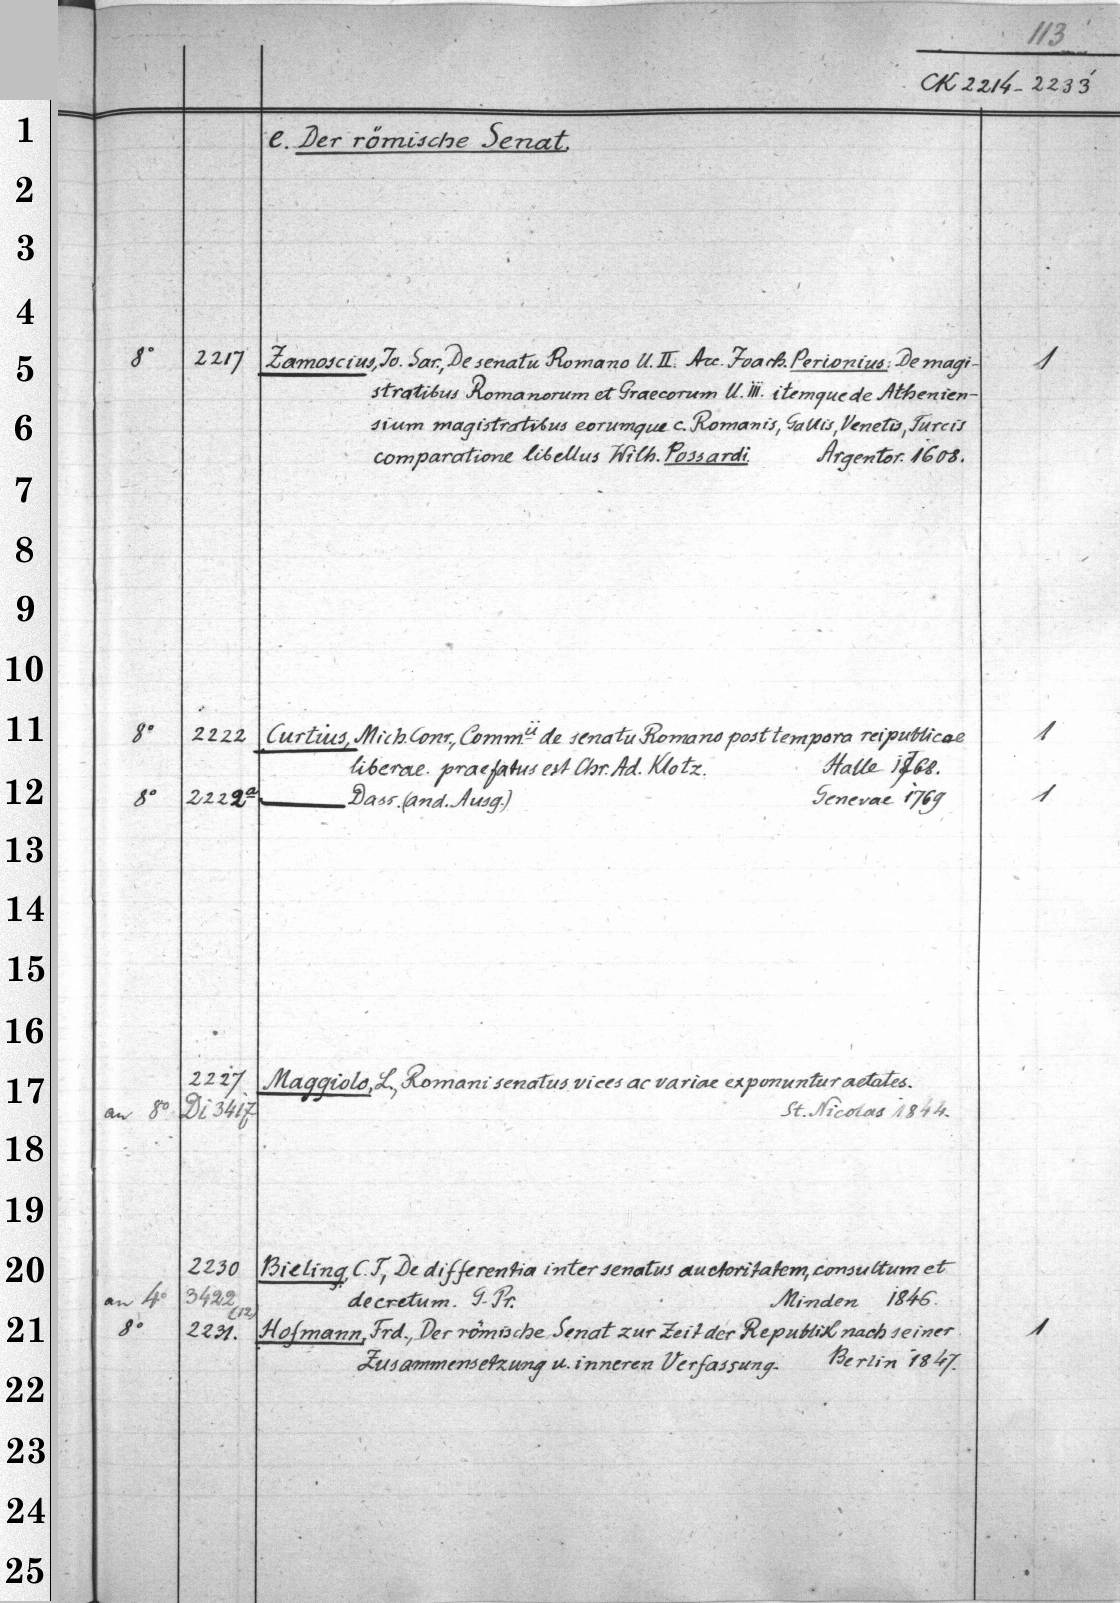 113
CK 2214-2233
1
e. Der römische Senat.
2
3
4
5
8° 2217 Zamoscius, Jo. Sar., De senatu Romano ll. II. Acc. Joach. Perionius: De magi- 1
stratibus Romanorum et Graecorum ll. iii. itemque de Athenien-
6
sium magistratibus eorumque c. Romanis, Gallis, Venetis, Turcis
comparatione libellus Wilh. Possardi. Argentor. 1608.
7
8
9
10
11
8° 2222 Curtius, Mich. Conr., Commii de senatu Romano post tempora reipublicae 1
liberae. praefatus est Chr. Ad. Klotz. Halle 1768.
12
8° 2222a ——— Dass. (and. Ausg.) Genevae 1769 1
13
14
15
16
17
2227 Maggiolo, L., Romani senatus vices ac variae exponuntur aetates.
an 8° Di 3417 St. Nicolas 1844.
18
19
20
2230 Bieling, C. T., De differentia inter senatus auctoritatem, consultum et
an 4° 3422 (12) decretum. G. Pr. Minden 1846.
21
8° 2231. Hofmann, Frd., Der römische Senat zur Zeit der Republik nach seiner 1
Zusammensetzung u. inneren Verfassung. Berlin 1847.
22
23
24
25